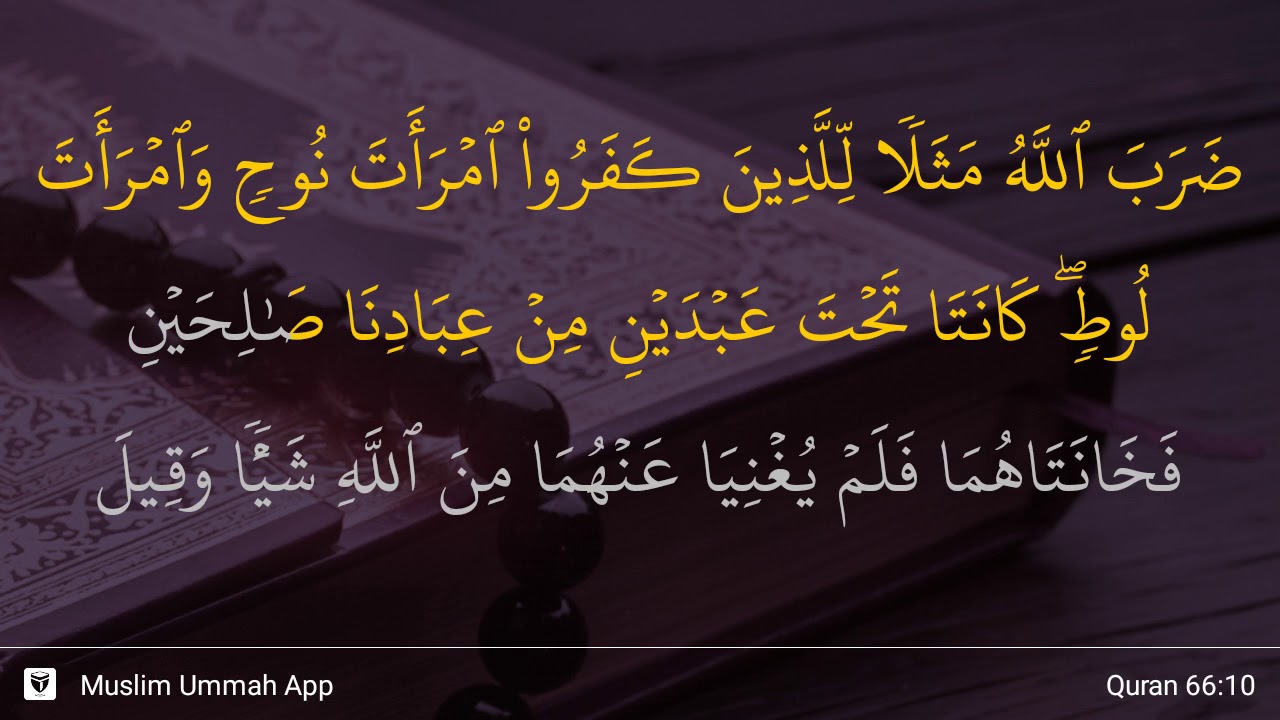 ضَرَبَ ٱللَّهُ مَثَلٗا لِّلَّذِينَ كَفَرُواْ ٱمۡرَأَتَ نُوحٖ وَٱمۡرَأَتَ
لُوطٖۖ كَانَتَا تَحۡتَ عَبۡدَيۡنِ مِنۡ عِبَادِنَا صَٰلِحَيۡنِ
فَخَانَتَاهُمَا فَلَمۡ يُغۡنِيَا عَنۡهُمَا مِنَ ٱللَّهِ شَيۡـٔٗا وَقِيلَ
Muslim Ummah App
Quran 66:10